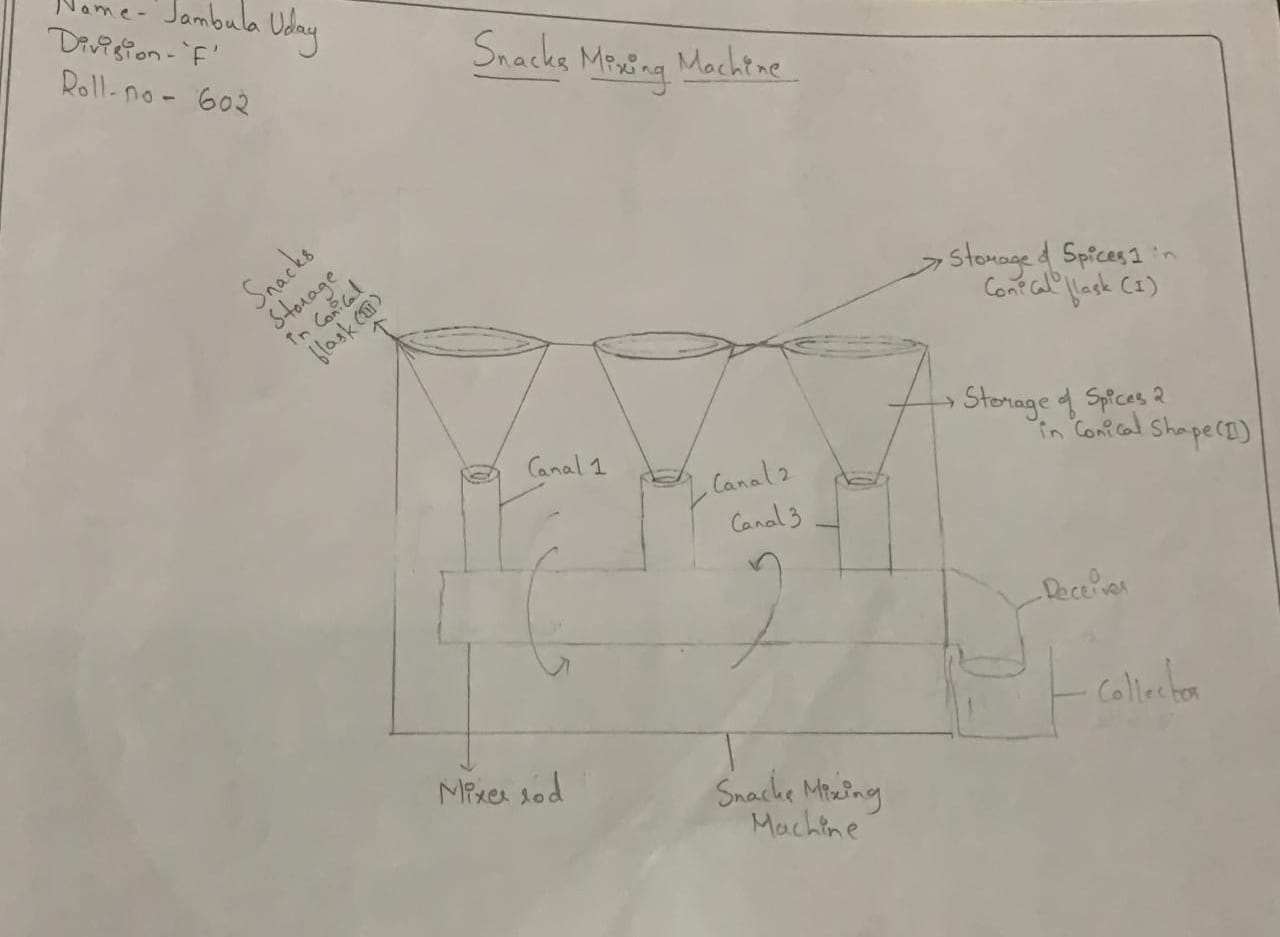 Name- Jambula Uday
Division-'F'
Roll-no- 602
Snacks Mixing Machine
Snacks
Storage
in Conical
flask (III)
Storage of Spices 1 in
Conical flask (I)
Storage of Spices 2
in Conical Shape (II)
Canal 1
Canal 2
Canal 3
Receiver
Collector
Mixer rod
Snacks Mixing
Machine